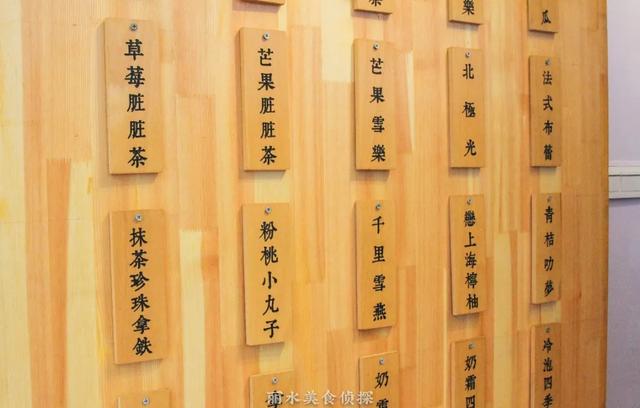 樂
樂
瓜
草莓脏脏茶
芒果脏脏茶
芒果雪樂
北極光
法式布蕾
抹茶珍珠拿鉄
粉桃小丸子
千里雪燕
戀上海檸柚
青桔叻夢
奶
奶霜四
冷泡四季
丽水美食侦探